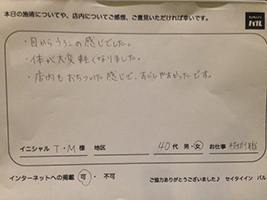 本日の施術についてや、店内についてご感想、ご意見いただければ幸いです。
・目からうろこの感じでした。
・体が大変軽くなりました。
・店内もおちついた感じで、すごしやすかったです。
イニシャル T・M 様 地区 40代 男・女 お仕事
インターネットへの掲載 可・不可
ご協力ありがとうございました♪ セイタイイン パル